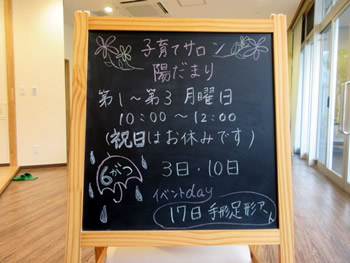 子育てサロン
陽だまり
第1～第3 月曜日
10:00～12:00
(祝日はお休みです)
6がつ
3日・10日
イベントday
17日 手形足形アート